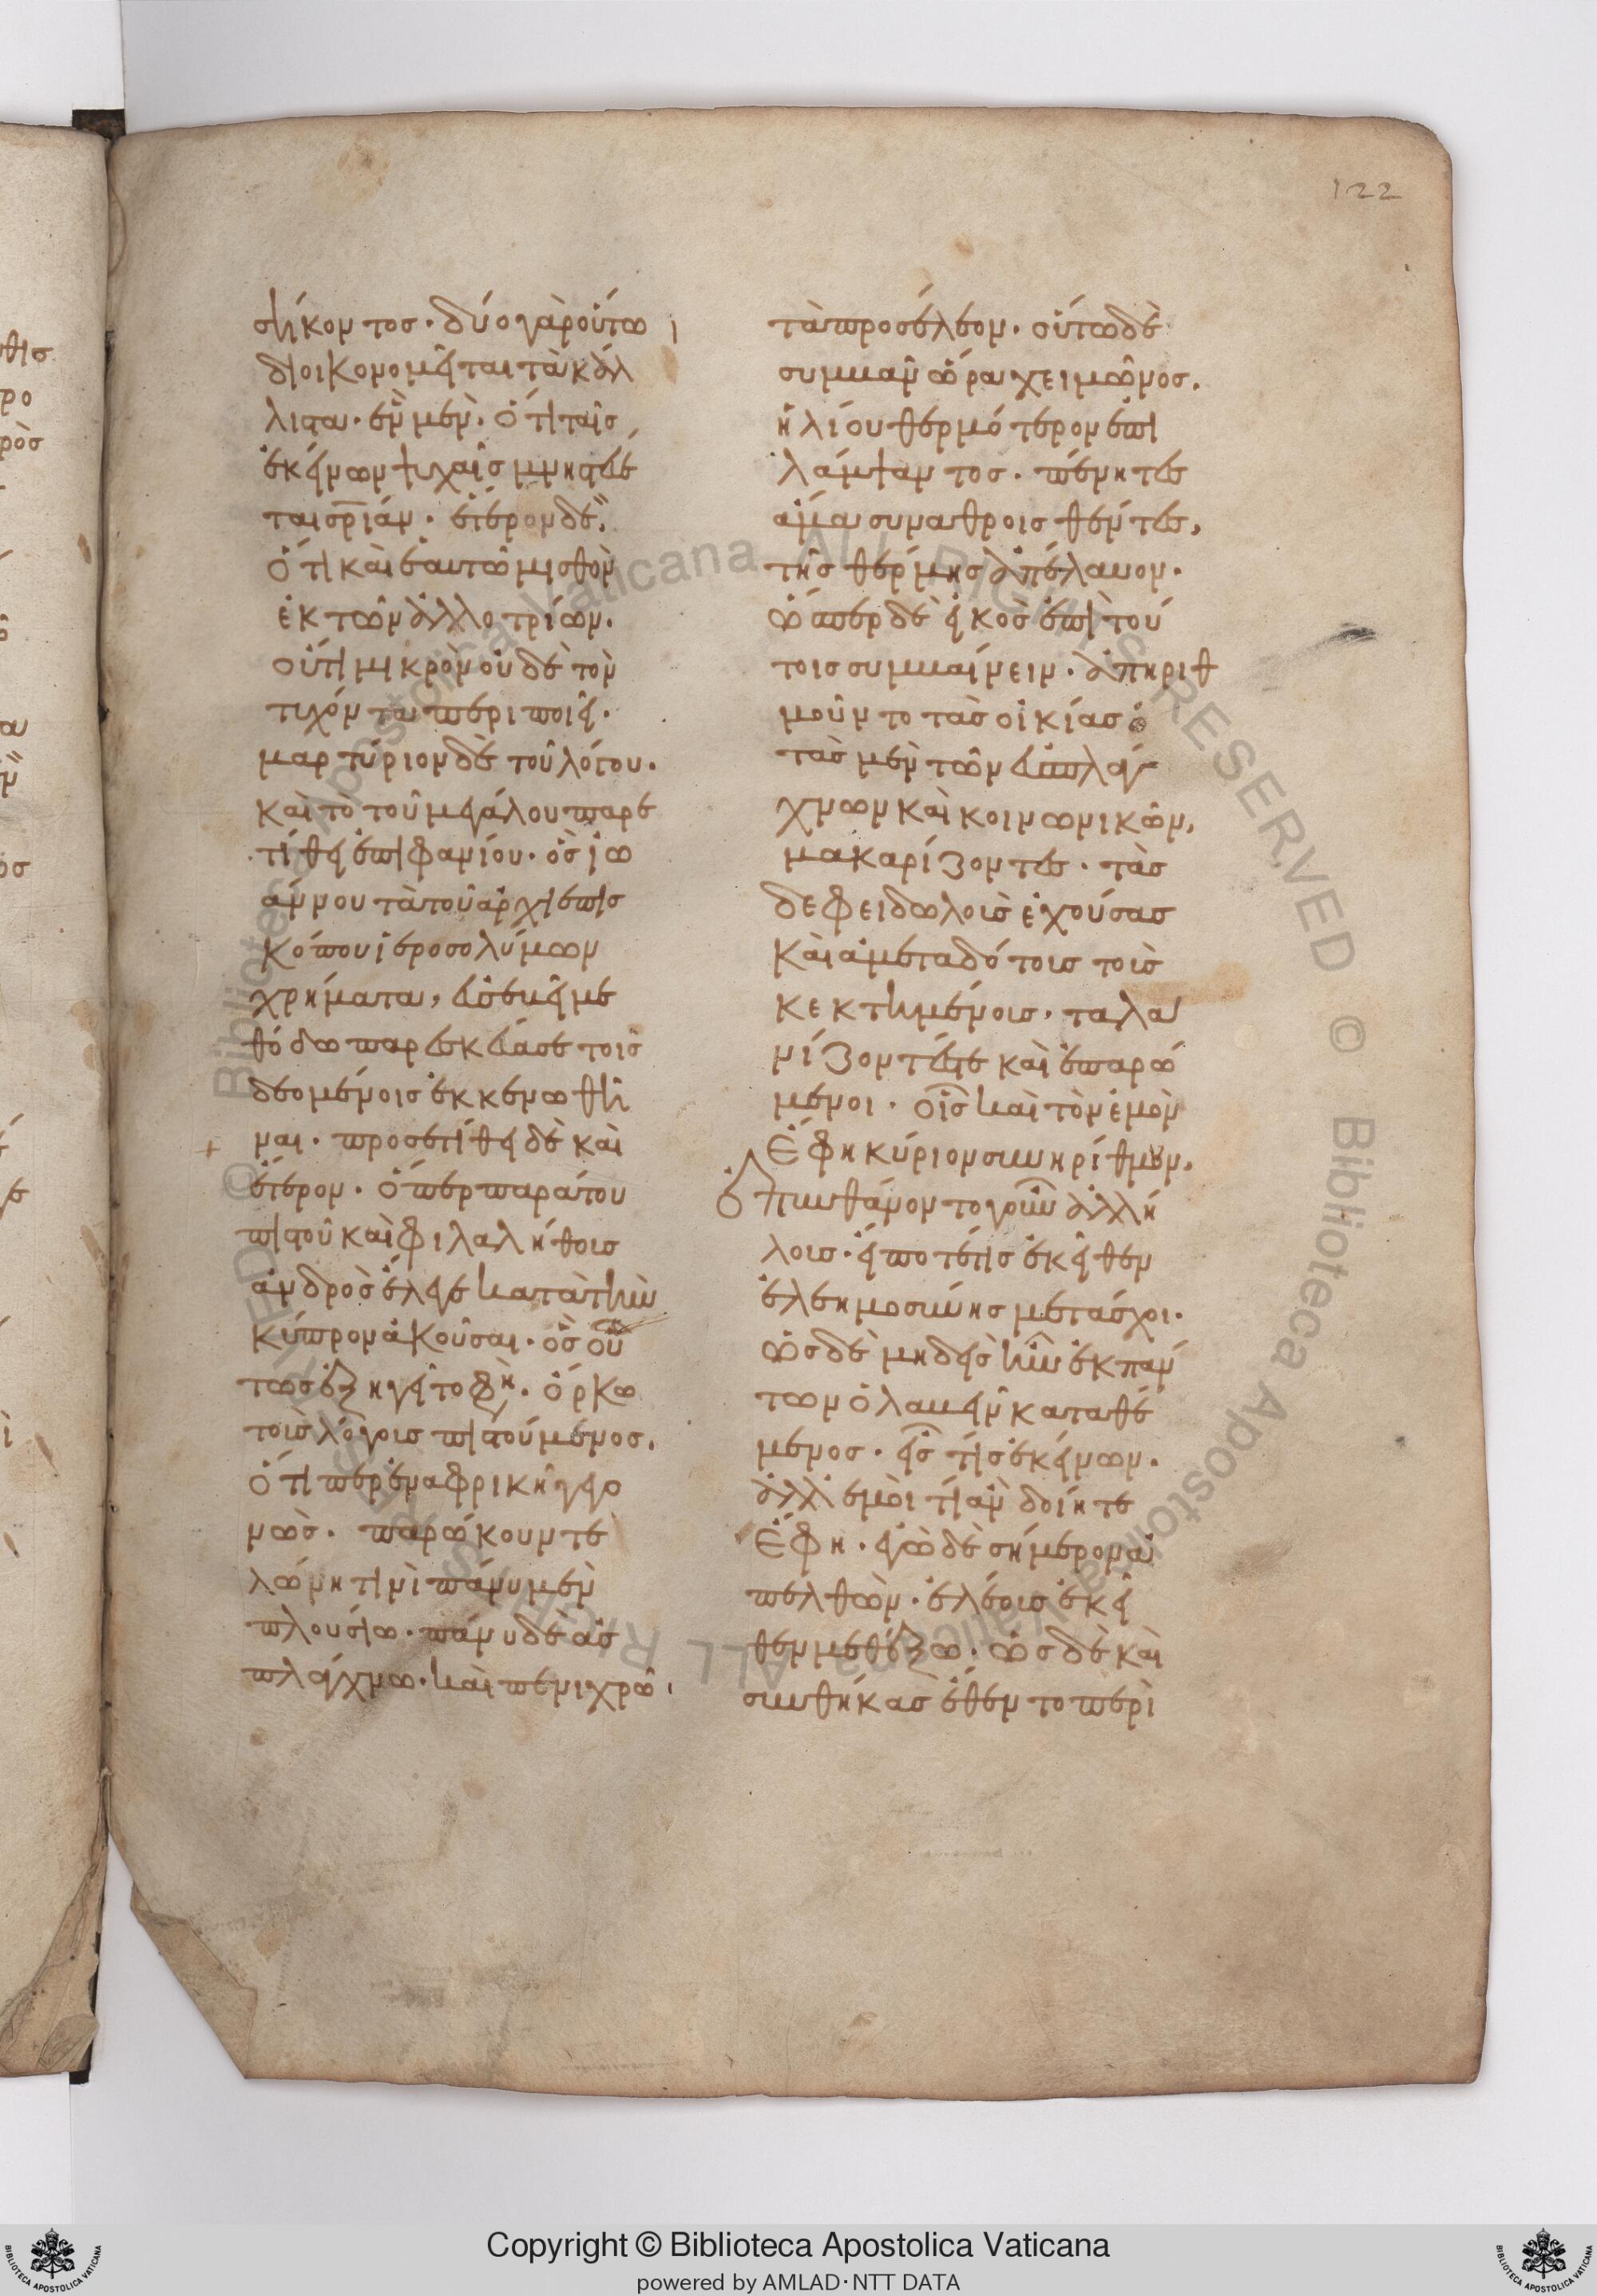 122
σήκοντος· δύο γὰρ οὕτω
διοικονομεῖται τὰ κάλ
λιστα· ἓν μὲν· ὅτι ταῖς
ἐκείνων ψυχαῖς μνηστεύε
ται σ̅ρ̅ίαν· ἕτερον δὲ,
ὅτι καὶ ἑαυτῶ μισθὸν
ἐκ τῶν ἀλλοτρίων.
οὔτι μικρὸν οὐδὲ τὸν
τυχόντα περιποιεῖ·
μαρτύριον δὲ τοῦ λόγου·
καὶ τὸ τοῦ μεγάλου παρε
τίθει ἐπιφανίου· ὃς ἰω
άννου τὰ τοῦ ἀρχιεπισ
κόπου ἱεροσολύμων
χρήματα, εὐσεβεῖ με
θόδω παρεσκεύασε τοῖς
δεομένοις ἐκκενωθῆ
ναι· προσετίθει δὲ καὶ
ἕτερον· ὅπερ παρά του
πιστοῦ καὶ φιλαλήθοις
ἀνδρὸς ἔλεγε κατὰ τὴν
κύπρον ἀκοῦσαι· ὃς οὕ
τως ἐξηγεῖτο φη· ὅρκω
τοὺς λόγοις πιστούμενος.
ὅτιπερ ἐν ἀφρικῆ γεγο
νὼς· παρώκουν τε
λώνη τινὶ πάνυ μὲν
πλουσίω· πάνυ δὲ ἀσ
πλάγχνω· καὶ πενιχρῶ·
τὰ προσέλεον· οὕτω δὲ
συμβὰν ὥρα χειμῶνος.
ἡλίου θερμότερον ἐπι
λάμψαντος· πένητες
ἅμα συναθροισθέντες,
τῆς θέρμης ἀπέλαυον·
ὥσπερ δὲ εἰκὸς ἐπὶ τού
τοις συμβαίνειν· ἀπηριθ
μοῦντο τὰς οἰκίας
τὰς μὲν τῶν εὐσπλάγ
χνων καὶ κοινωνικῶν,
μακαρίζοντες· τὰς
δε φειδωλοὺς ἐχούσας
καὶ ἀμεταδότους τοὺς
κεκτημένους, ταλα
νίζοντές τε καὶ ἐπαρώ
μενοι· οἷς καὶ τὸν ἐμὸν
ἔφη κύριον συνηρίθμουν.
ἐπυνθάνοντο γοῦν ἀλλή
λοις· εἴποτέ τις ἐκεῖθεν
ἐλεημοσύνης μετάσχοι·
ὡς δὲ μηδεὶς ἦν ἐκ πάν
των ὁ λαβεῖν καταθέ
μενος· εἷς τις ἐκείνων.
ἀλλ' ἐμοὶ τί ἂν δοίητε
ἔφη· ἐγὼ δὲ σήμερον ἀ
πελθὼν· ἐλέους ἐκεῖ
θεν μεθέξω· ὡς δὲ καὶ
συνθήκας ἔθεντο περὶ
Copyright © Biblioteca Apostolica Vaticana
powered by AMLAD·NTT DATA